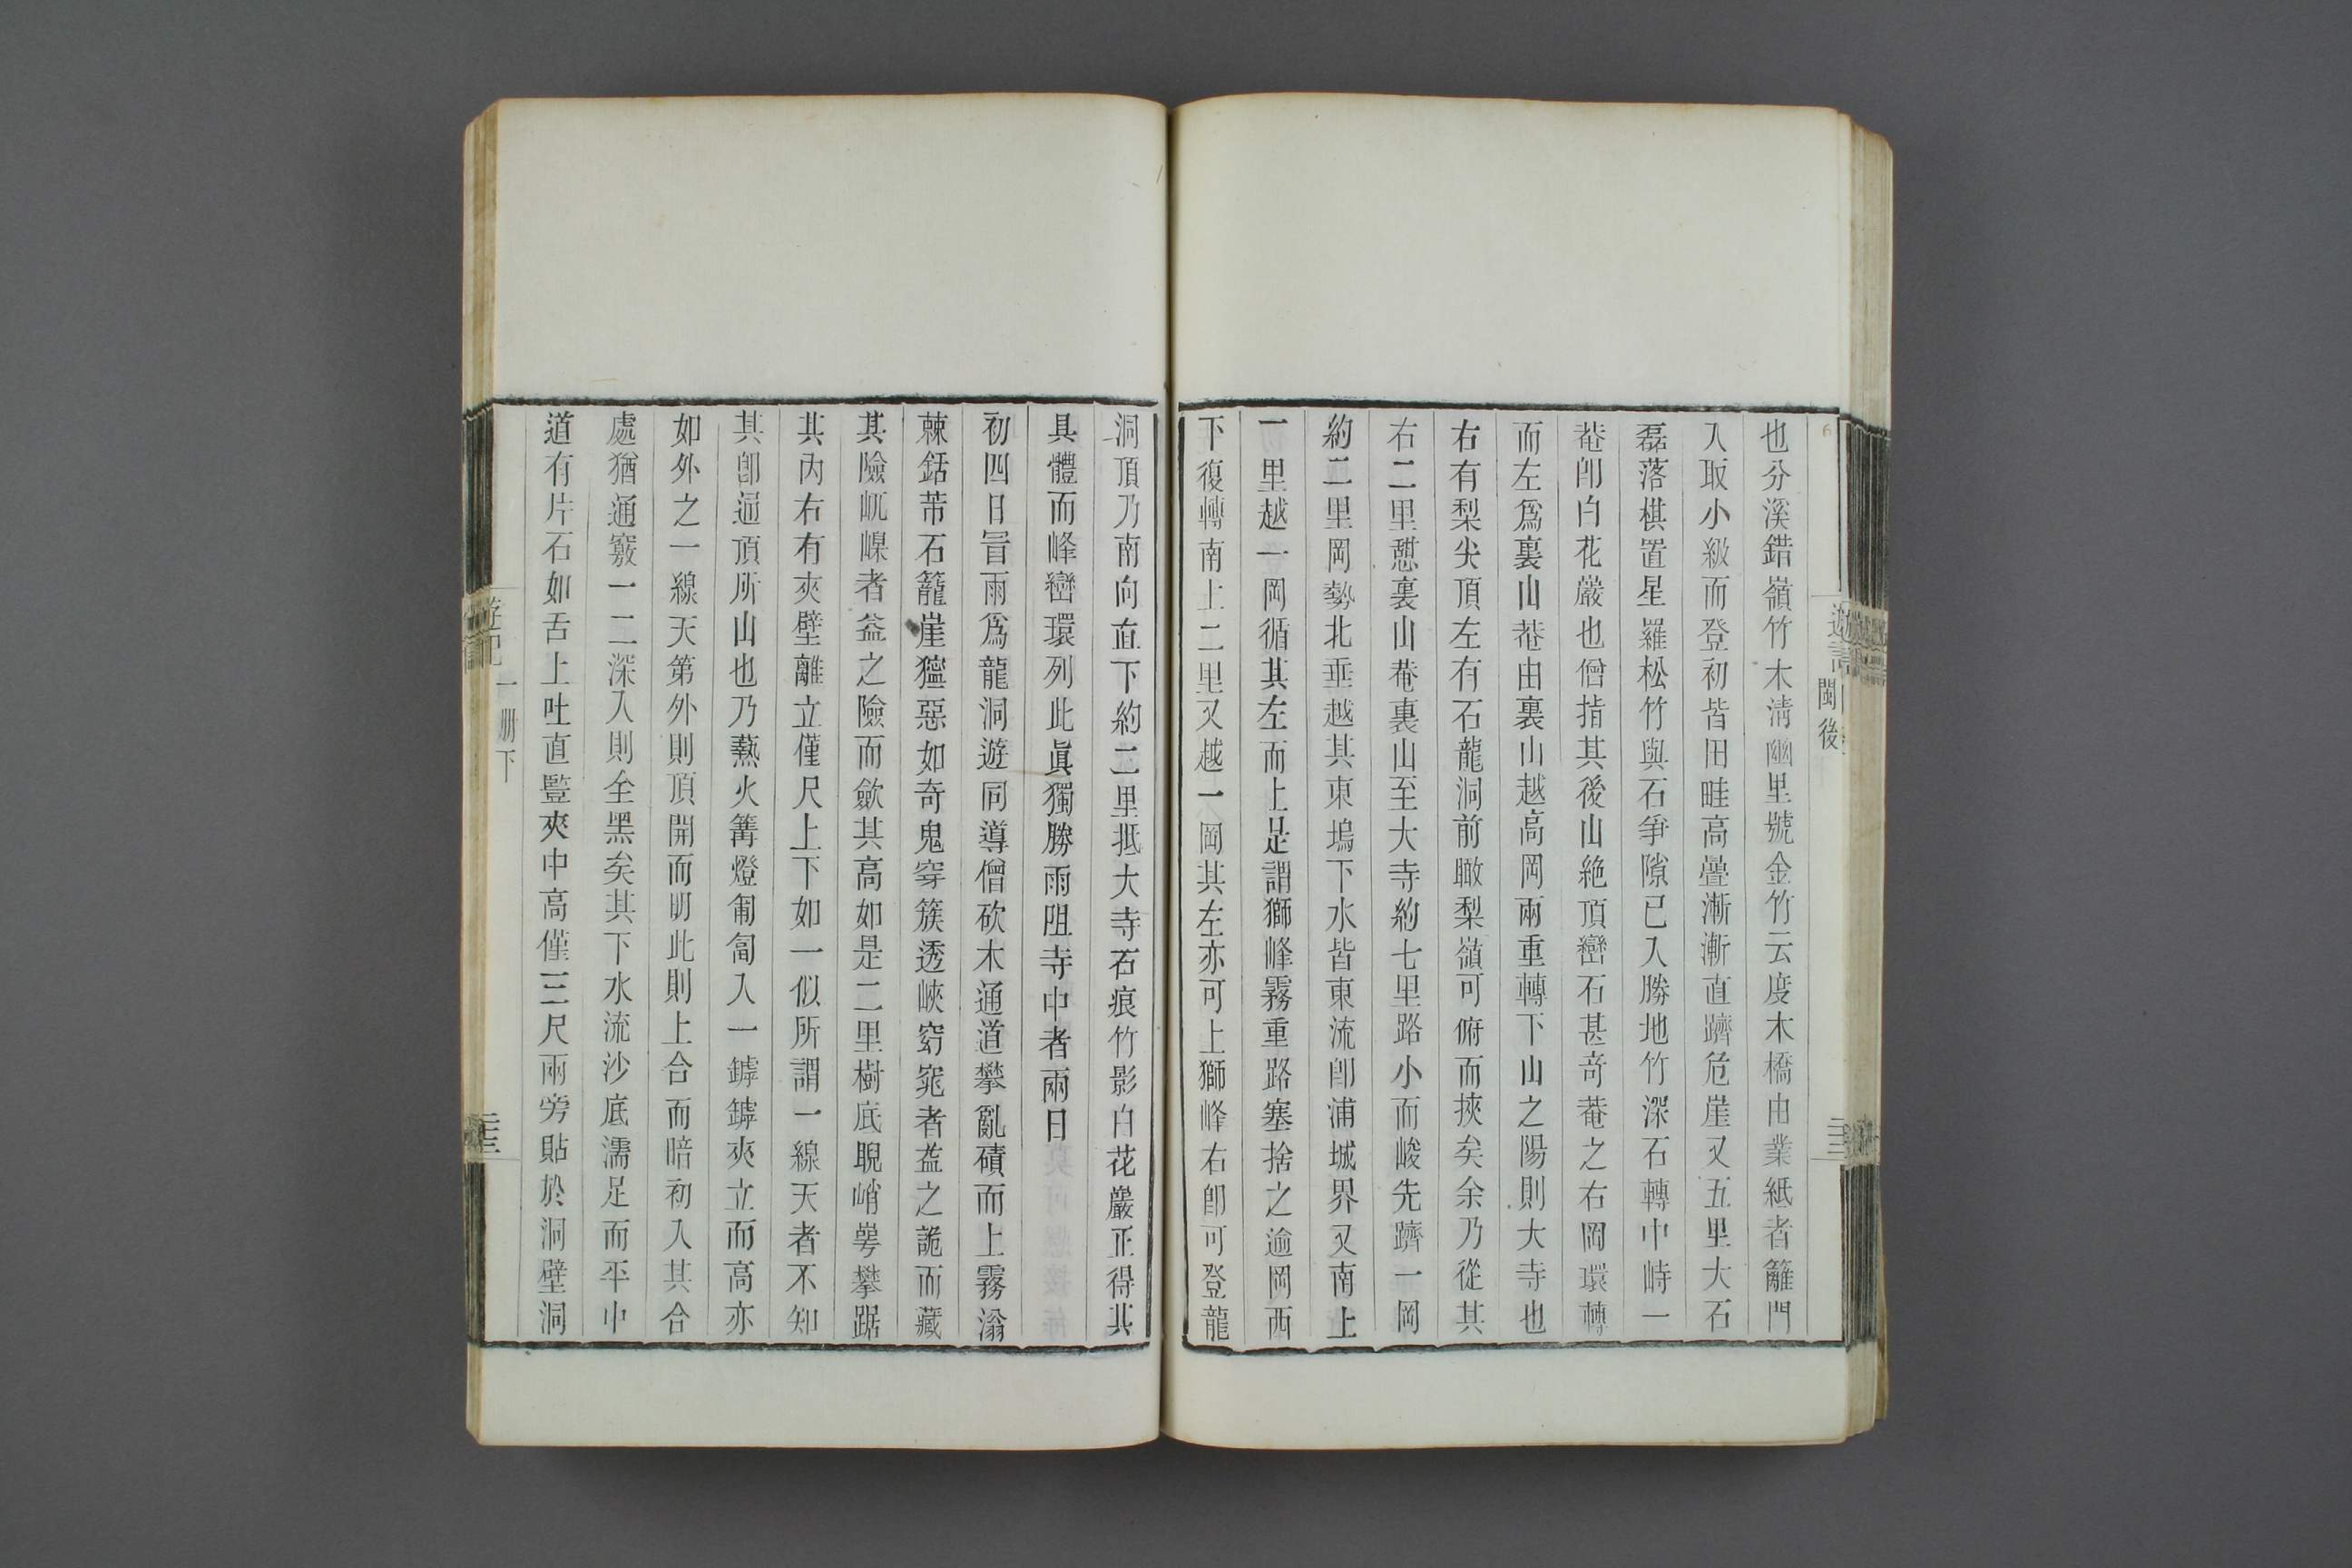 遊記
閩後
也分溪錯嶺竹木清幽里號金竹云度木橋由業紙者籬門
入取小級而登初皆田畦高疊漸漸直躋危崖又五里大石
磊落棋置星羅松竹與石爭隙已入勝地竹深石轉中峙一
菴卽白花巖也僧指其後山絶頂巒石甚奇菴之右岡環轉
而左爲裏山菴由裏山越高岡兩重轉下山之陽則大寺也
右有梨尖頂左有石龍洞前瞰梨嶺可俯而挾矣余乃從其
右二里憇裏山菴裏山至大寺約七里路小而峻先躋一岡
約二里岡勢北垂越其東塢下水皆東流卽浦城界又南上
一里越一岡循其左而上是謂獅峰霧重路塞捨之逾岡西
下復轉南上二里又越一岡其左亦可上獅峰右卽可登龍
洞頂乃南向直下約二里抵大寺石痕竹影白花巖正得其
具體而峰巒環列此眞獨勝雨阻寺中者兩日
初四日冒雨爲龍洞遊同導僧砍木通道攀亂磧而上霧滃
棘銛芾石籠崖獰惡如奇鬼穿簇透峽窈窕者益之詭而藏
其險屼嵲者益之險而歛其高如是二里樹底睨峭崿攀踞
其內右有夾壁離立僅尺上下如一似所謂一線天者不知
其卽通頂所由也乃爇火篝燈匍匐入一罅罅夾立而高亦
如外之一線天第外則頂開而明此則上合而暗初入其合
處猶通竅一二深入則全黑矣其下水流沙底濡足而平中
道有片石如舌上吐直豎夾中高僅三尺兩旁貼於洞壁洞
遊記
一册下